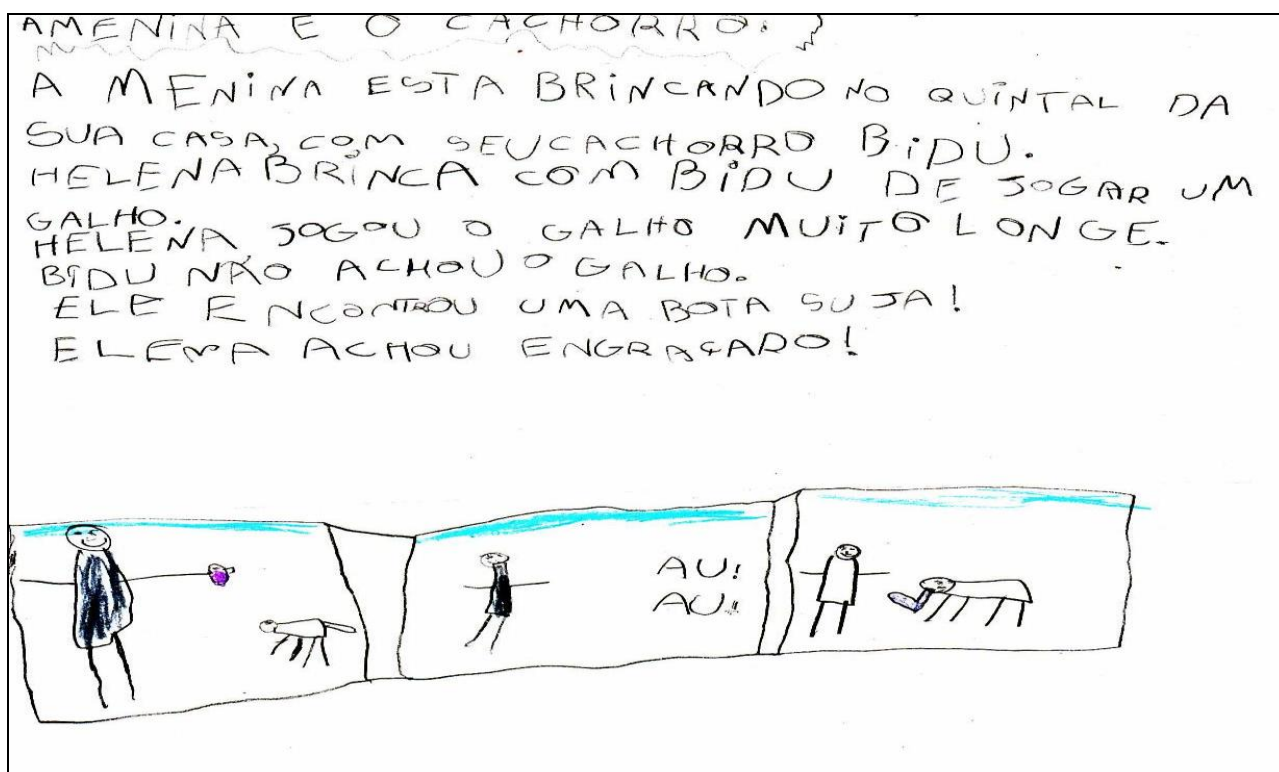 AMENINA E O CACHORRO.
A MENINA ESTA BRINCANDO NO QUINTAL DA
SUA CASA, COM SEUCACHORRO BIDU.
HELENA BRINCA COM BIDU DE JOGAR UM
GALHO.
HELENA JOGOU O GALHO MUITO LONGE.
BIDU NÃO ACHOU O GALHO.
ELE ENCONTROU UMA BOTA SUJA!
ELENA ACHOU ENGRAÇADO!
AU!
AU!!